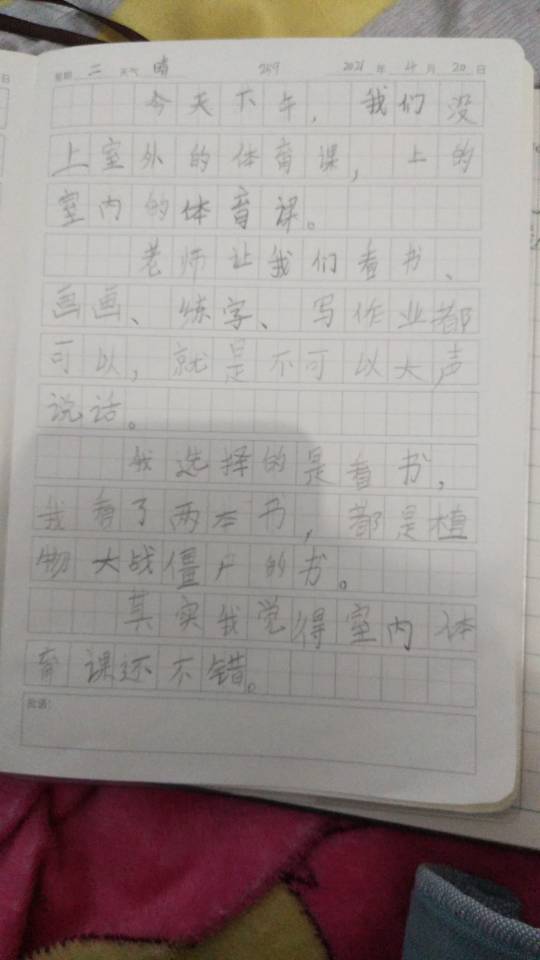 星期 二 天气 晴 259 2021 年 4 月 20 日
今天下午，我们没
上室外的体育课，上的
室内的体育课。
老师让我们看书、
画画、练字、写作业都
可以，就是不可以大声
说话。
我选择的是看书，
我看了两本书，都是植
物大战僵尸的书。
其实我觉得室内体
育课还不错。
批语：
日